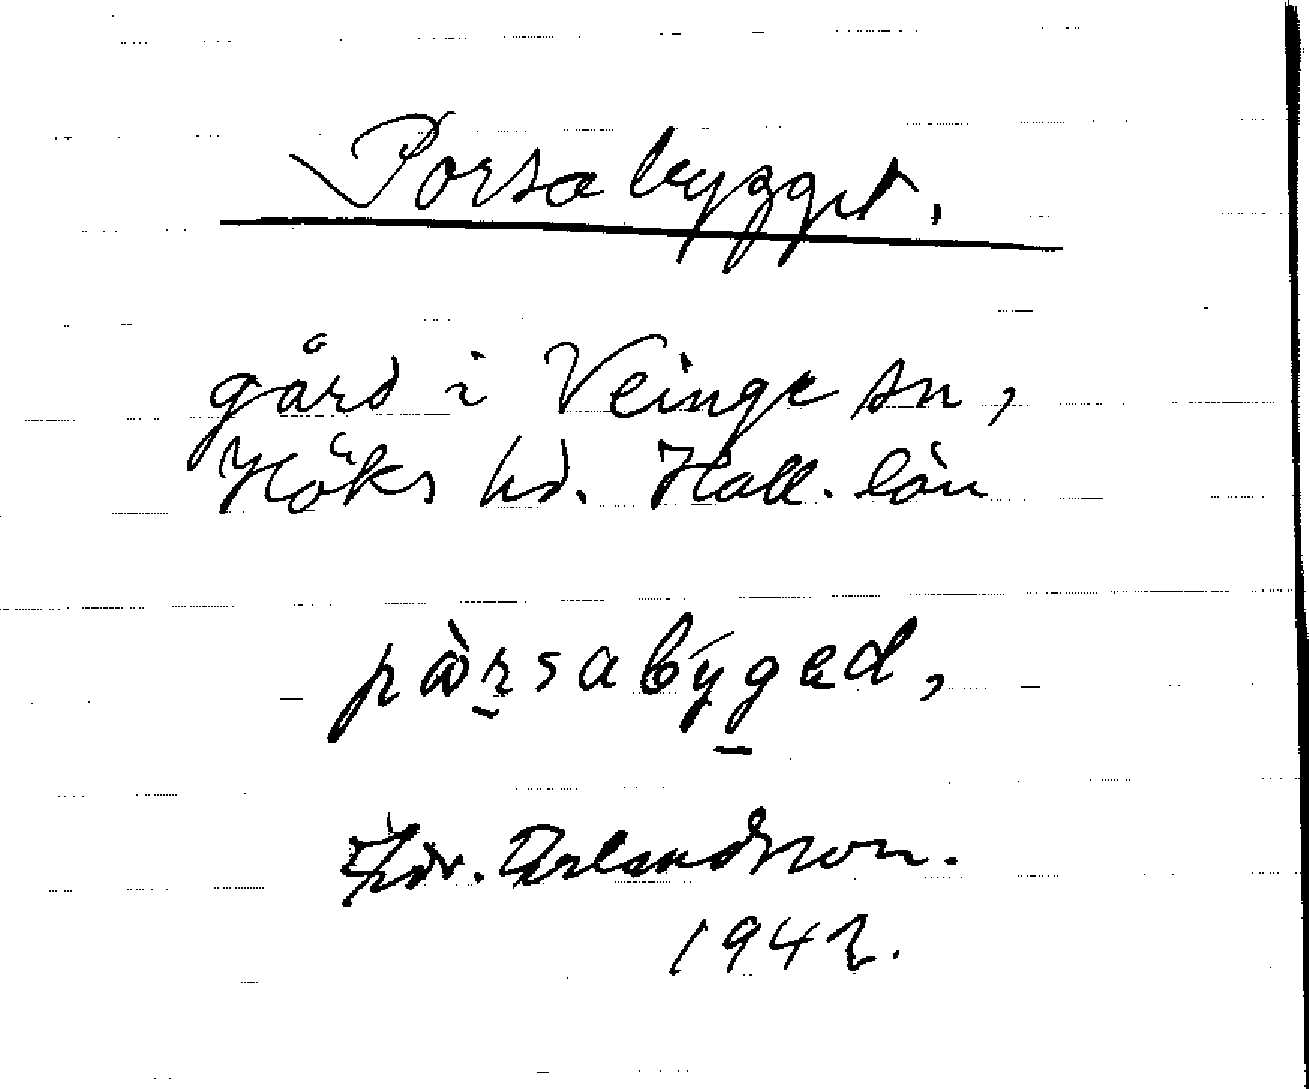 Porsabygget.
gård i Veinge sn,
Höks hd. Hall. län
pàrsabýgad,
Erlandsson.
1942.